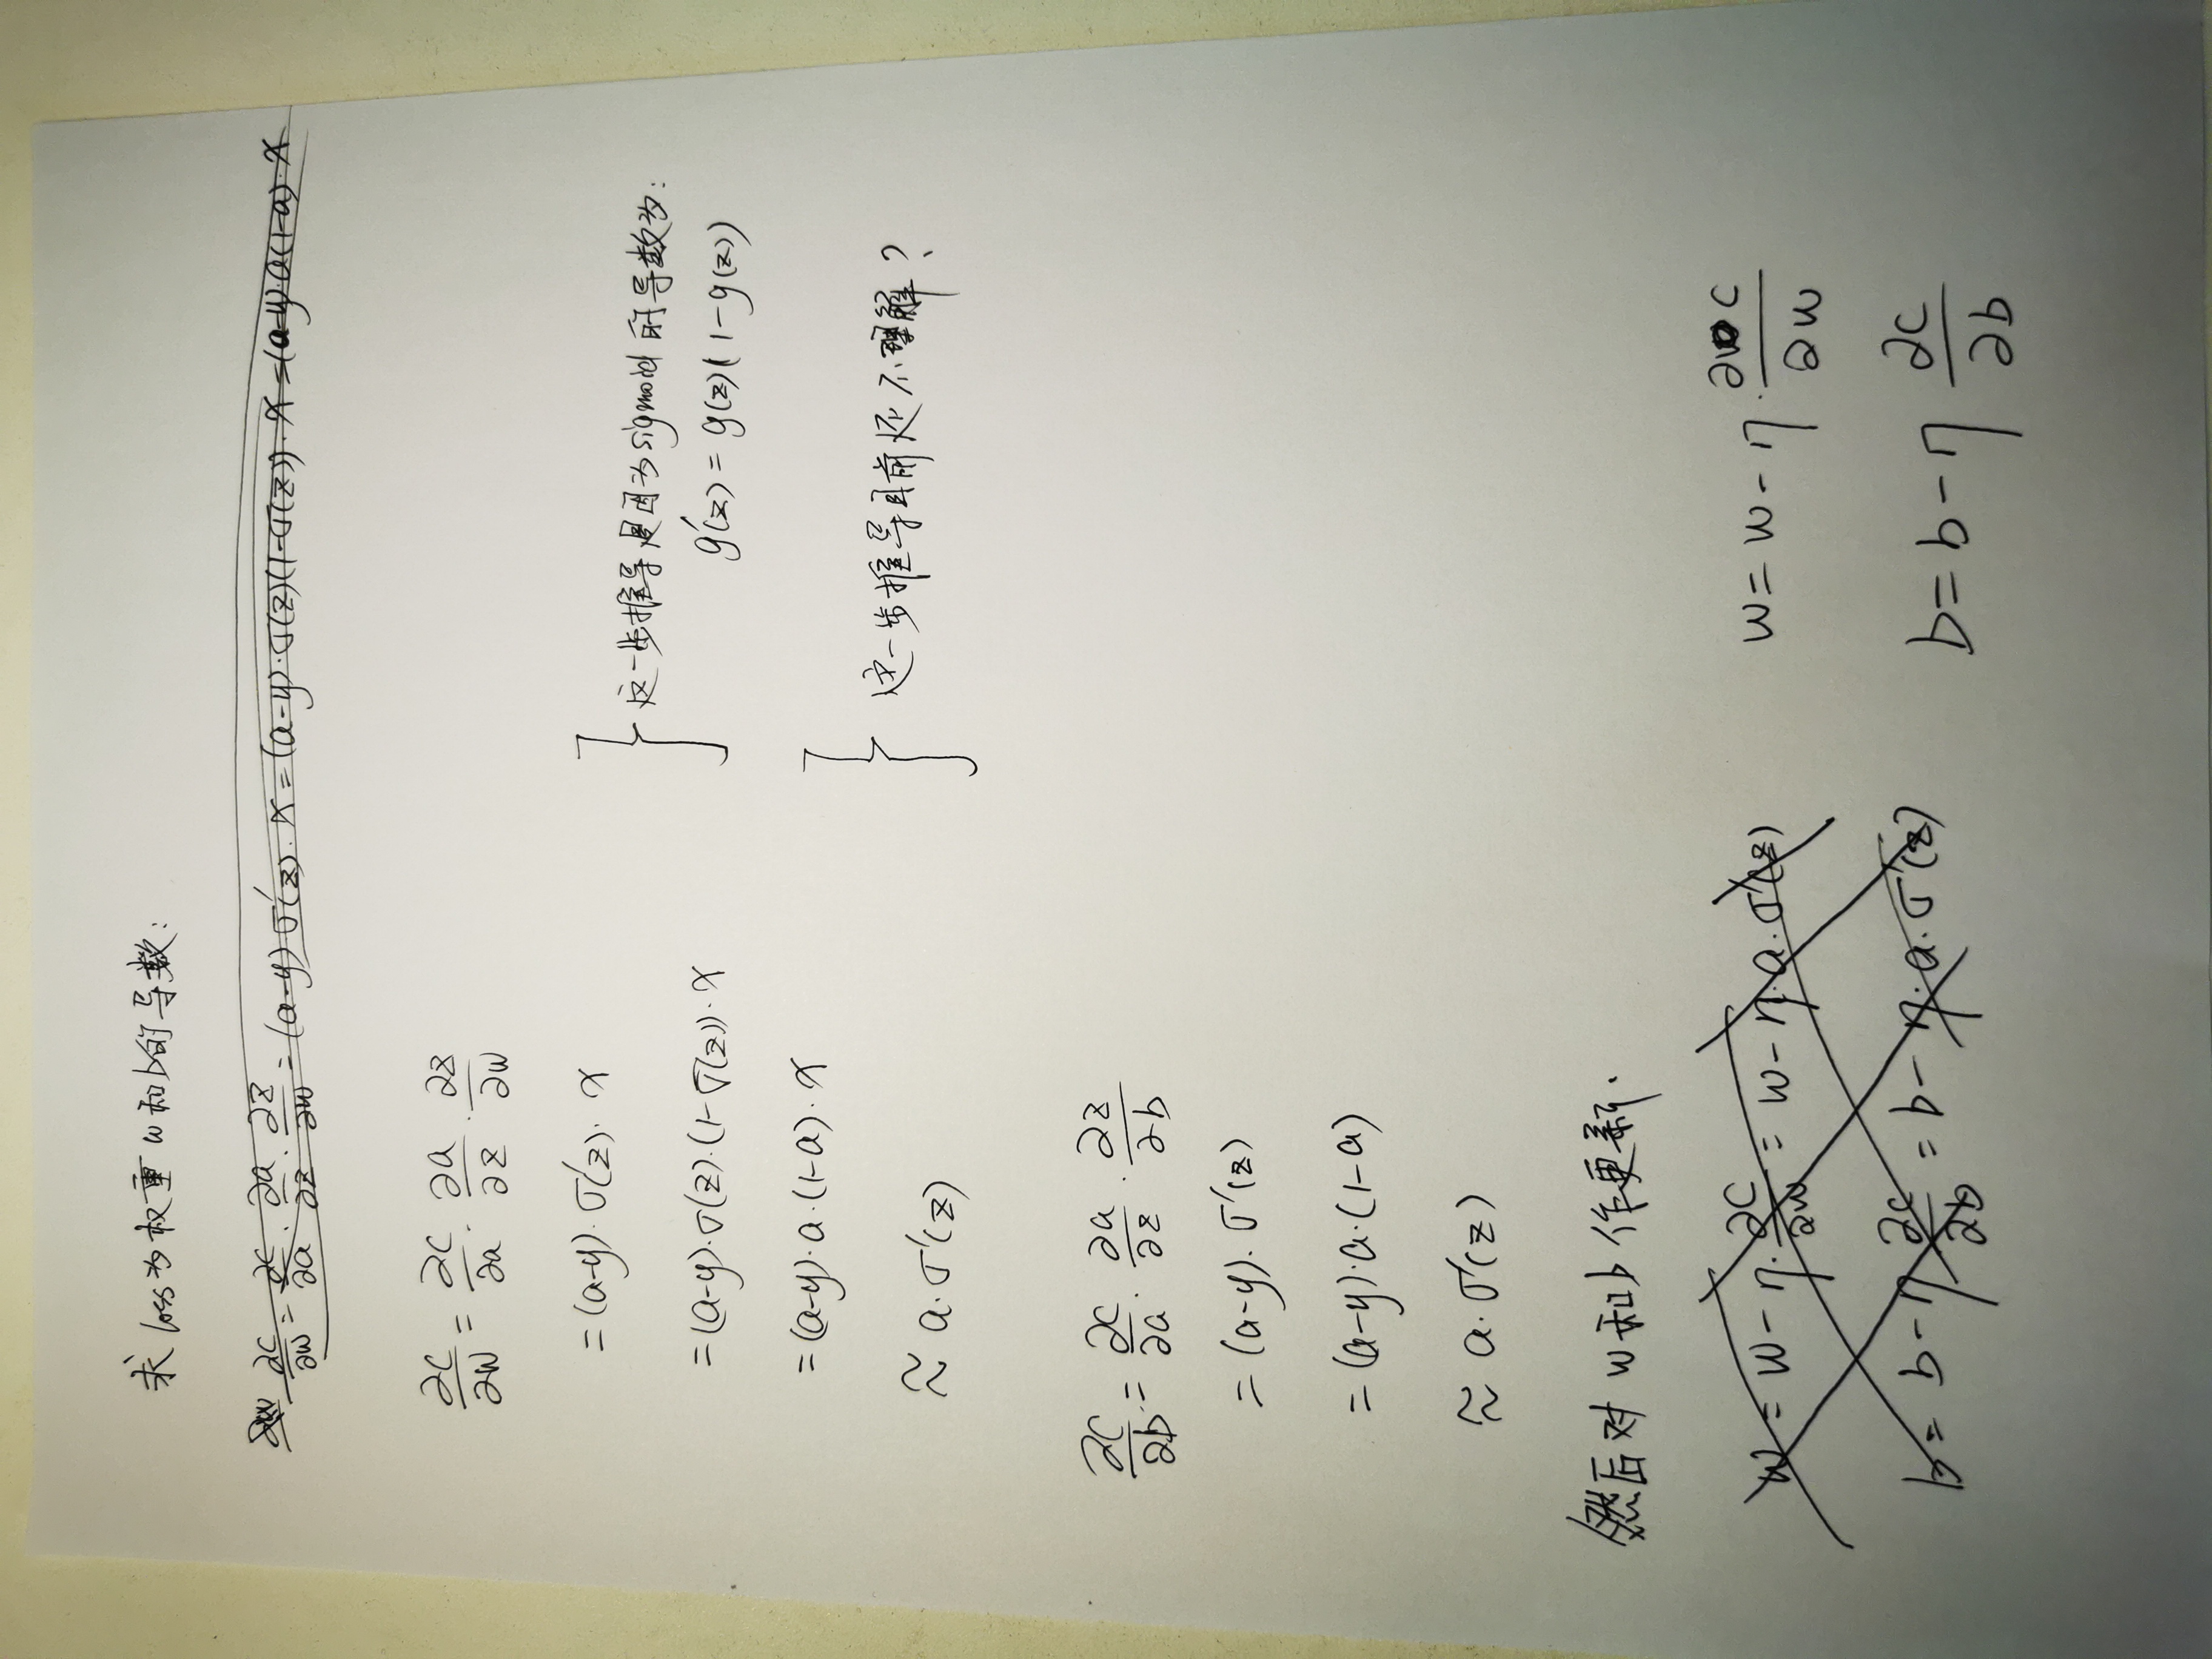 求 loss为权重 w和b的导数:
∂w ∂C/∂w = ∂C/∂a · ∂a/∂z · ∂z/∂w = (a-y) σ'(z) · x = (a-y)·σ(z)(1-σ(z))·x = (a-y)·a(1-a)·x
∂C/∂w = ∂C/∂a · ∂a/∂z · ∂z/∂w
= (a-y)·σ'(z)· x
这一步推导是因为sigmoid的导数为:
= (a-y)·σ(z)·(1-σ(z))·x
g'(z) = g(z)(1-g(z))
= (a-y)·a·(1-a)·x
这一步推导目前还不理解?
≈ a·σ'(z)
∂C/∂b = ∂C/∂a · ∂a/∂z · ∂z/∂b
= (a-y)·σ'(z)
= (a-y)·a·(1-a)
≈ a·σ'(z)
然后对 w和b 作更新.
w = w - η·∂C/∂w = w - η·a·σ'(z)
w = w - η·∂C/∂w
b = b - η ∂C/∂b = b - η·a·σ'(z)
b = b - η ∂C/∂b